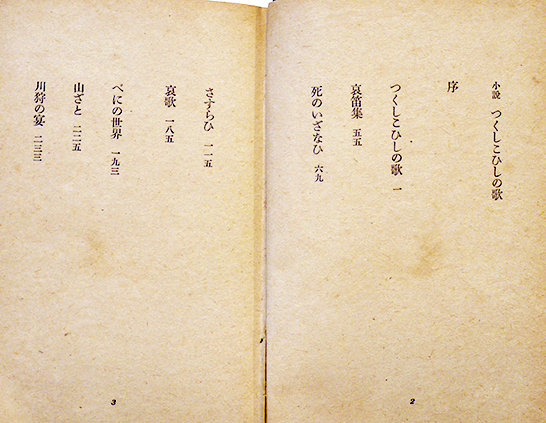 小説 つくしこひしの歌
序
つくしこひしの歌 一
哀笛集 五五
死のいざなひ 六九
2
さすらひ 一一五
哀歌 一八五
べにの世界 一九三
山ざと 二二五
川狩の宴 二三三
3